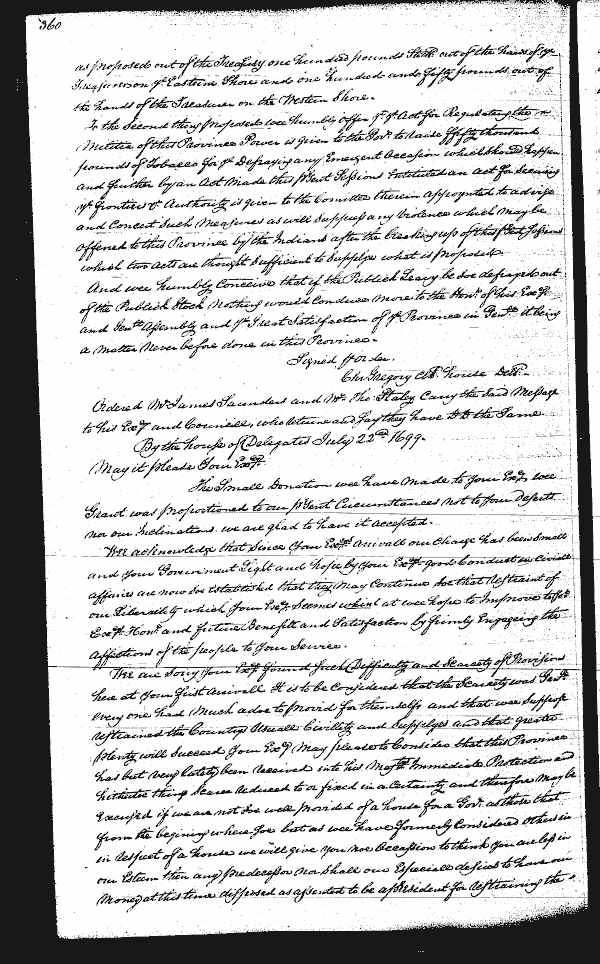 360
as proposed out of the Treasury one hundred pounds Sterl. out of the hands of ye
Treasurer on ye Eastern Shore and one hundred and fifty pounds out of
the hands of the Treasurer on the Western Shore.
To the Second thing proposed wee humbly offer yt ye Act for Regulating the
Militia of this Province Power is given to the Govr. to raise fifty thousand
pounds of Tobacco for ye Defraying any Emergent Occasion which should happen
and further by an Act Made this psent Sessions Intituled an act for Securing
ye frontiers &c Authority is given to the Comittee therein appoynted to advise
and Concert Such Measures as will Suppress any Violence which May be
offered to this Province by the Indians after the breaking up of this psent Sessions
which two Acts are thought Sufficient to Supply what is proposed.
And wee humbly Conceive that if the Publick Leavy be soe defrayed out
of the Publick Stock nothing would Conduce More to the Honr. of his Exncy
and Genll Assembly and ye Great Satisfaction of ye Province in Genll it being
a matter Never before done in this Province.
Signed p Order.
Chr Gregory Clk house Dell.
Ordered Mr James Saunders and Mr Tho Staley Carry the said Message
to his Excy and Councill, who returne and say they have DD the Same
By the house of Delegates July 22nd 1699.
May it please Your Excy.
The Small Donation wee have made to Your Excy wee
Grant was proportioned to our psent Circumstances not to Your deserts
nor our Inclinations. we are glad to have it accepted.
Wee acknowledge that Since Your Excys arrivall our Charge has been Small
and Your Government Light and hope by Your Excys good Conduct in Civill
affaires are now soe established that they May Continue Soe that restraint of
our Liberality which Your Excy Seemes at wee hope to Improve to Yor
Excys Honr and future Benefitt and Satisfaction by firmly Engageing the
affections of the people to Your Service.
Wee are Sorry Your Excy found Such Difficulty and Scarcety of Provisions
here at Your first Arrivall It is to be Considered that the Scarcety was Genll
every one had Much adoe to provid for themselfs and that wee Suppose
restrained the Countrys Usuall Civillity and Supplyes and that greater
plenty will Succeed Your Excy May please to Consider that this Province
has but very lately been received into his Majtys Immediate Protection and
hitherto things Scarce reduced to or fixed in a Certainty and therefore May be
excused if we are not Soe well provided of a house for a Govr. as those that
from the begining where Soe but as wee have formerly Considered others in
in respect of a house we will give You noe Occassion to think You are less in
our Esteem then any predecessor nor shall our Especiall desires to have our
Money at this time disposed as assented to be a President for restraining the